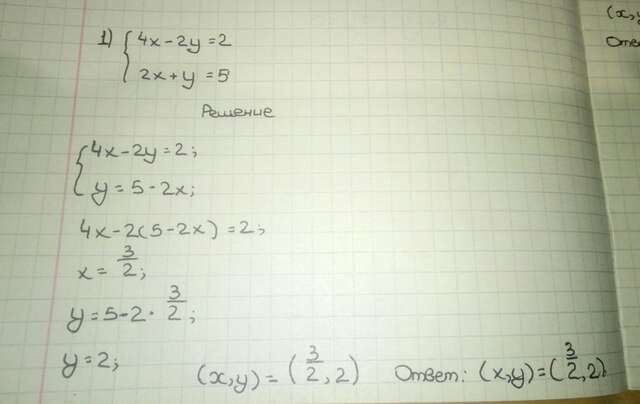 1) { 4x-2y=2
2x+y=5
Решение
{ 4x-2y=2;
y=5-2x;
4x-2(5-2x)=2;
x= 3/2;
y=5-2· 3/2;
y=2;
(x,y)=(3/2,2) Ответ: (x,y)=(3/2,2)
(x,y
Отве